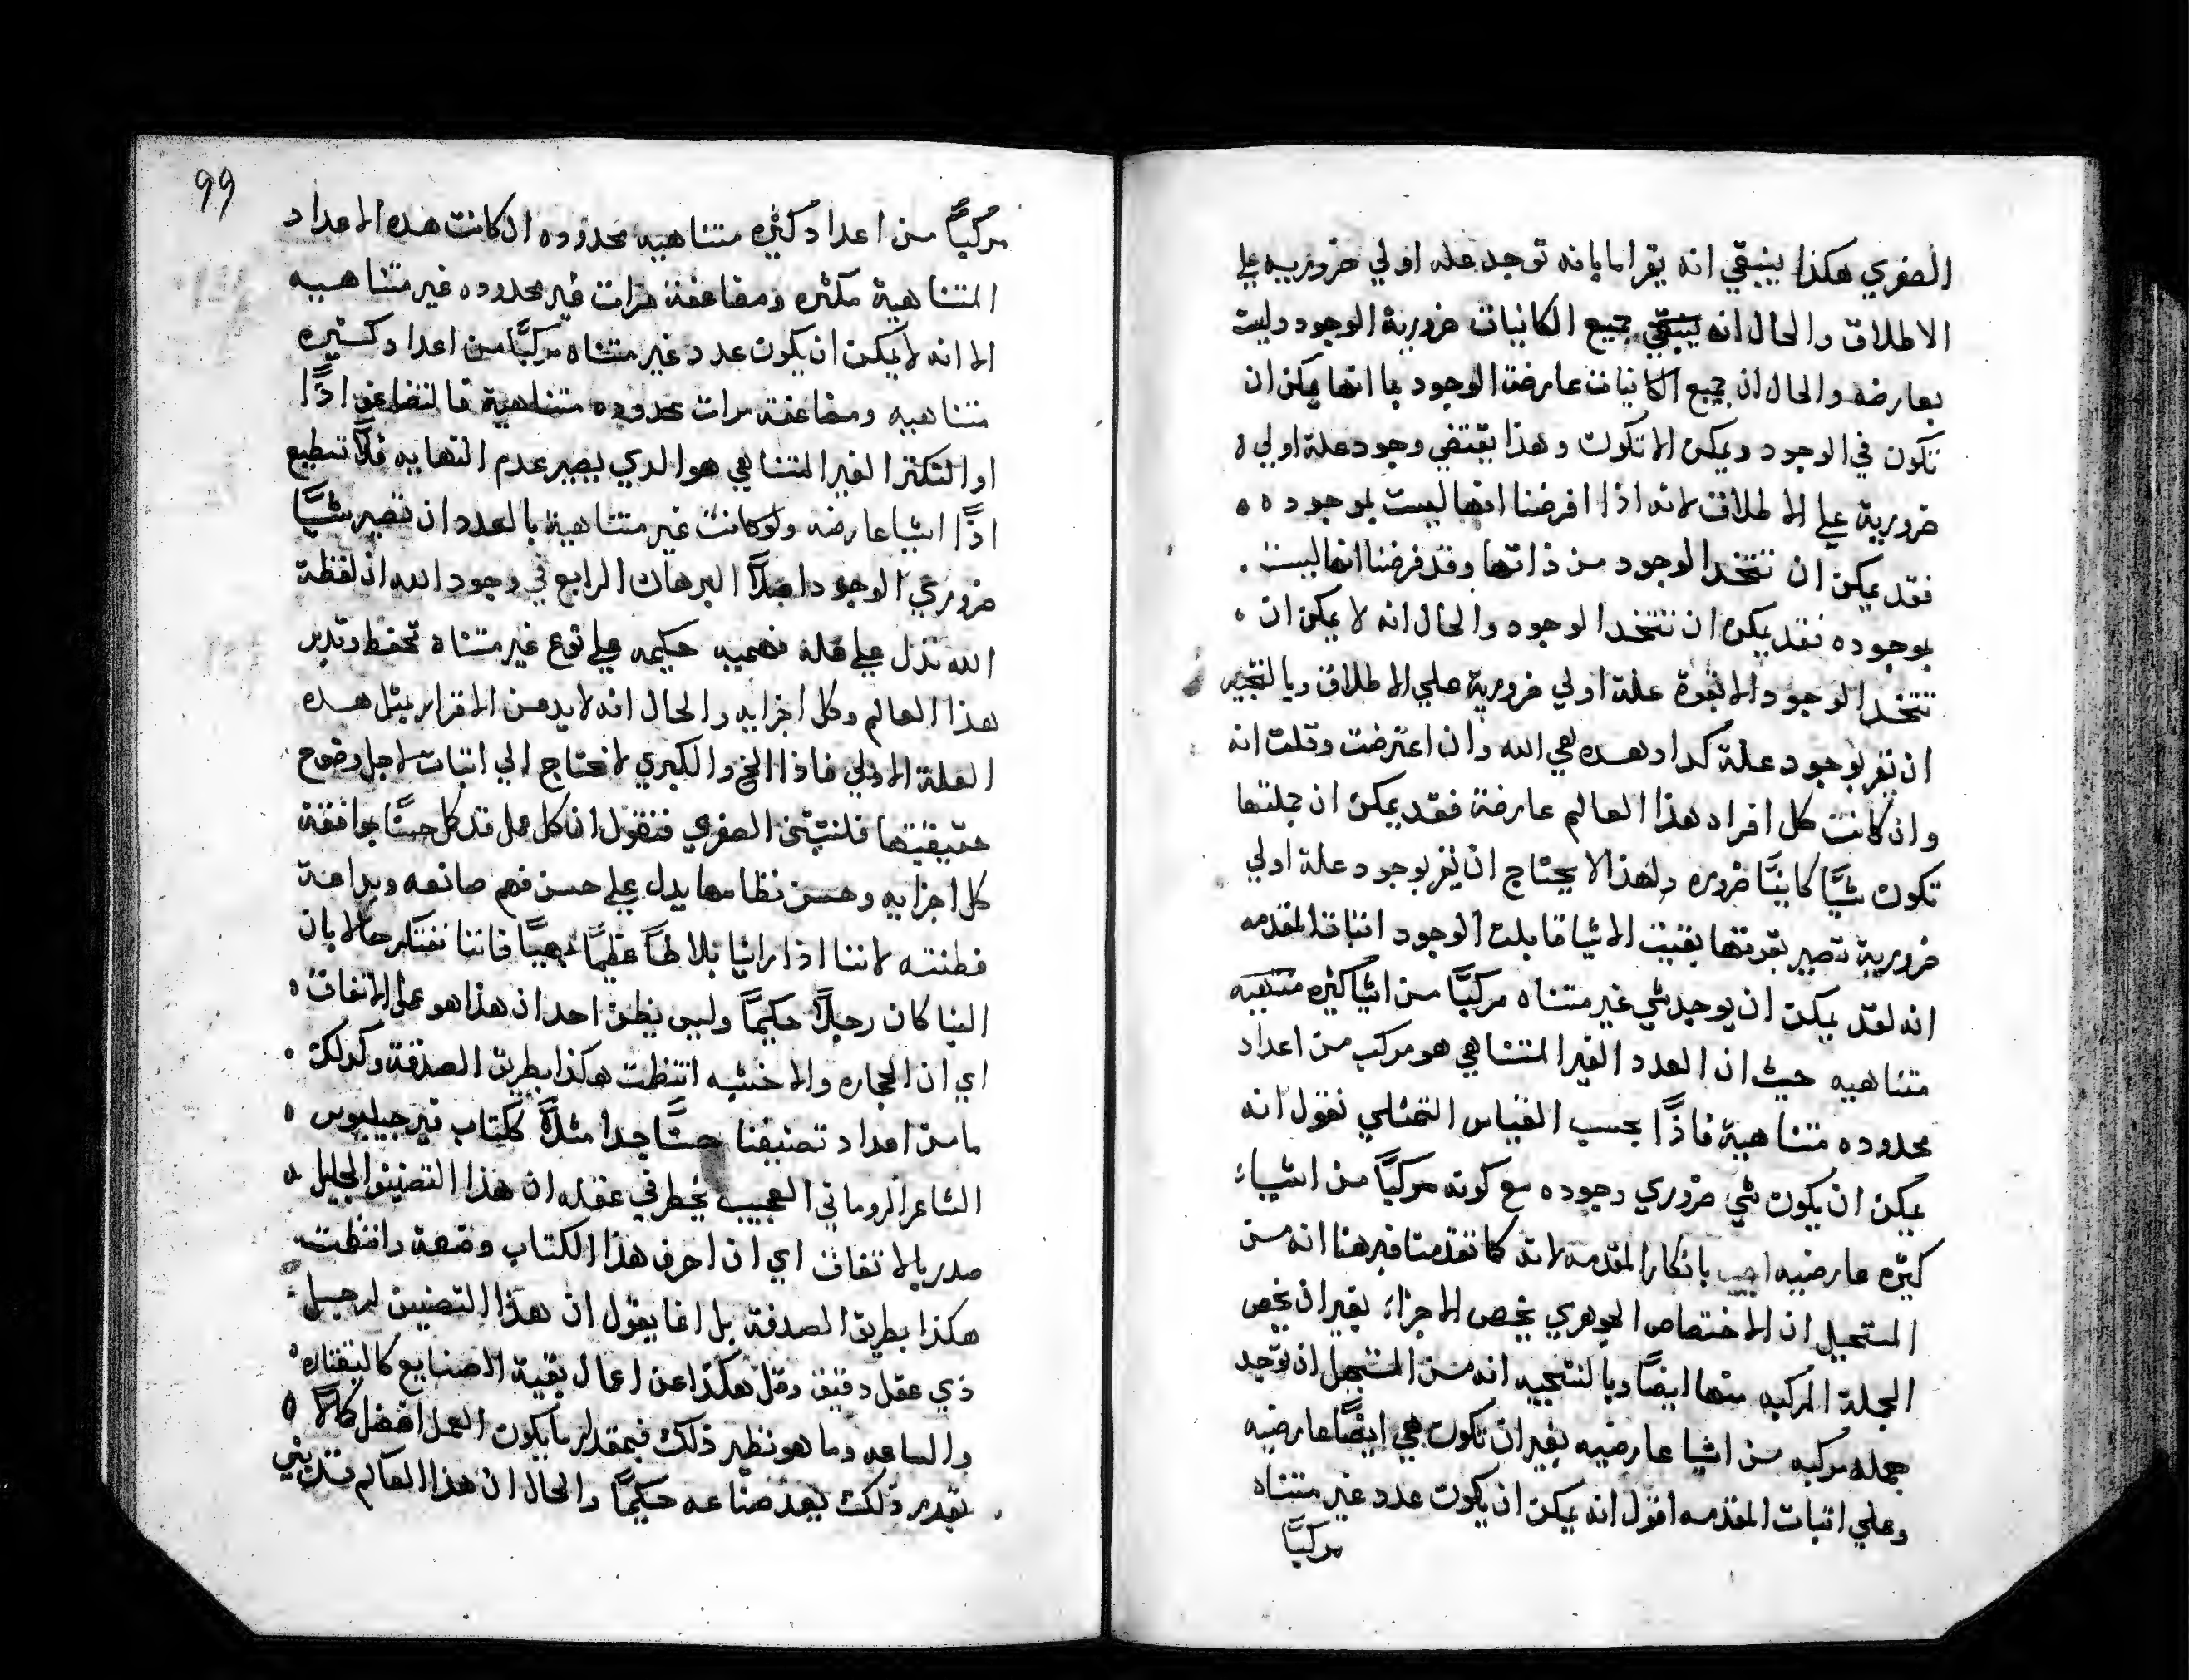 الصغري هكذا ينبغي انه يقر امابانه توجد عله اولي ضروريه علي
الاطلاق والحال انه ينبغي جميع الكاينات ضرورية الوجود وليت
بعارضه والحال ان جميع الكاينات عارضة الوجود بما انها يمكن ان
تكون في الوجود ويمكن الا تكون وهذا يقتضي وجود علة اولي
ضرورية علي الاطلاق لانه اذا افرضنا انها ليست بوجوده
فقد يمكن ان تتخد الوجود من ذاتها وقد فرضنا انها ليست
بوجوده فقد يمكن ان تتخد الوجود والحال انه لا يمكن ان
تتخد الوجود الا بقوة علة اولي ضرورية علي الاطلاق وبالنتجيه
ان يقر بوجود علة كدا وهده هي الله وان اعترضت وقلت انه
وان كانت كل افراد هذا العالم عارضة فقد يمكن ان جملتها
تكون شيًا كاينًا ضروره ولهذا لا يحتاج ان يقر بوجود علة اولي
ضرورية تصير بقوتها بقيت الاشيا قابلت الوجود اثباتا لمقدمه
انه لقد يمكن ان يوجد شي غير متناه مركبًا من اشيا كثيره
متناهيه حيث ان العدد الغير المتناهي هو مركب من اعداد
محدوده متناهية فاذًا بحسب القياس التمثلي نقول انه
يمكن ان يكون شي ضروري وجوده مع كونه مركبًا من اشياء
كثيره عارضيه اجيب بانكار المقدمه لانه كما تقدمنا فبرهنا انه من
المستحيل ان الاختصاص الجوهري يخص الاجزاء بغير ان يخص
الجملة المركبه منها ايضًا وبالنتيجيه انه من المستحيل ان توجد
جمله مركبه من اشيا عارضيه بغير ان تكون هي ايضًا عارضيه
وعلي اتبات المقدمه اقول انه يمكن ان يكون عدد غير متناه
مركبًا
99
مركبًا من اعداد كثيره متناهيه محدوده ان كانت هده الاعداد
المتناهية مكثره ومضاعفة مرات غير محدوده غير متناهيه
الا انه لا يمكن ان يكون عدد غير متناه مركبًا من اعداد كثيره
متناهيه ومضاعفة مرات محدوده متناهية فالتضاعف اذًا
او التكثر الغير المتناهي هو الدي يصير عدم النهايه فلا تسطيع
اذًا اشيا عارضه ولو كانت غير متناهية بالعدد ان تصير شيًا
ضروري الوجود اصلًا البرهان الرابع في وجود الله ان لفظة
الله تدل علي علة فهميه حكيمه علي نوع غير متناه تحفظ وتدبر
هذا العالم وكل اجزايه والحال انه لا بد من الاقرار بمثل هده
العلة الاولي فاذا الخ والكبري لا تحتاج الي اتبات لاجل وضوح
حقيقتها فلنتبثن الصغري فنقول ان كل عمل قد كل حسنًا بموافقة
كل اجزايه وحسن نظامها يدل علي حسن فهم صانعه وبراعة
فطنته لاننا اذا راينا بلاطًا عظيمًا بهيًا فاننا نفتكر حالا بان
البنا كان رجلًا حكيمًا وليس يظن احد ان هذا هو عمل الاتفاق
اي ان الحجاره والاخشبه انتظمت هكذا بطريق الصدفة وكدلك
ما من احد اد تصنيفنا حسنًا جدا مثلًا ككتاب فيرجيليوس
الشاعر الروماني العجيب يخطر في عقله ان هذا التصنيف الجليل
صدر بالاتفاق اي ان احرف هذا الكتاب وقعة وانتظمت
هكذا بطريق الصدفة بل انما يقول ان هذا التصنيف لرجل
ذي عقل دقيق وقل هكذا عن اعمال بقية الصنايع كالبقتاره
والساعه وما هو نظير ذلك فبمقدار ما يكون العمل افضل كمالًا
بقدر ذلك يعد صناعه حكيمًا والحال ان هذا العالم قد بني